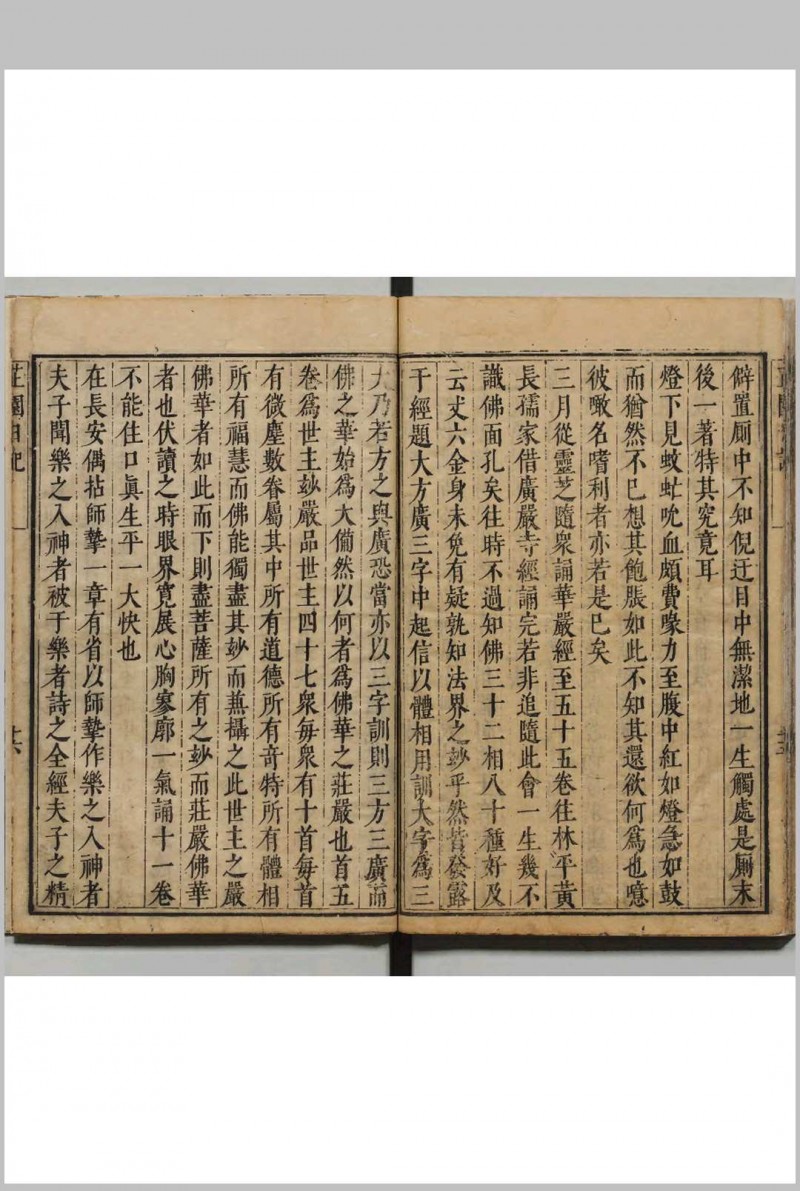 僻置厠中不知倪迂目中無潔地一生觸處是厠末
後一著特其究竟耳
燈下見蚊虻吮血頗費喙力至腹中紅如燈急如鼓
而猶然不已想其飽脹如此不知其還欲何爲也噫
彼噉名嗜利者亦若是已矣
三月從靈芝隨衆誦華嚴經至五十五卷往林平黃
長孺家借廣嚴寺經誦完若非追隨此會一生幾不
識佛面孔矣往時不過知佛三十二相八十種好及
云丈六金身未免有疑孰知法界之玅乎然皆發露
于經題大方廣三字中起信以體相用訓大字爲三
大乃若方之與廣恐當亦以三字訓則三方三廣
佛之華始爲大備然以何者爲佛華之莊嚴也首五
卷爲世主玅嚴品世主四十七衆每衆有十首每首
有微塵數眷屬其中所有道德所有奇特所有體相
所有福慧而佛能獨盡其玅而兼攝之此世主之嚴
佛華者如此而下則盡菩薩所有之玅而莊嚴佛華
者也伏讀之時眼界寬展心胸寥廓一氣誦十一卷
不能住口眞生平一大快也
在長安偶拈師摯一章有省以師摯作樂之入神者
夫子聞樂之入神者被于樂者詩之全經夫子之精